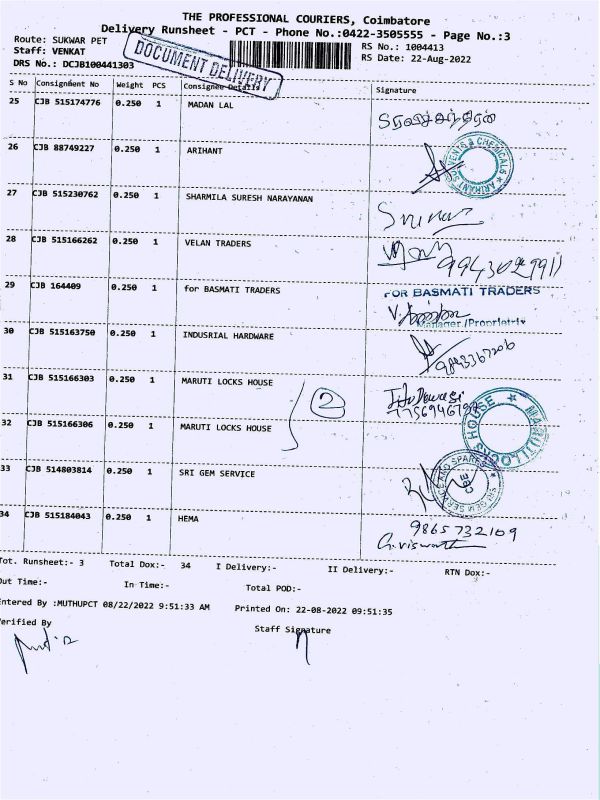 THE PROFESSIONAL COURIERS, Coimbatore
Delivery Runsheet - PCT - Phone No.:0422-3505555 - Page No.:3
Route: SUKWAR PET
RS No.: 1004413
Staff: VENKAT
RS Date: 22-Aug-2022
DRS No.: DCJB100441303
DOCUMENT DELIVERY
S No Consignment No Weight PCS Consignee Details Signature
25 CJB 515174776 0.250 1 MADAN LAL
26 CJB 88749227 0.250 1 ARIHANT
ARIHANT SOLVENTS & CHEMICALS
27 CJB 515230762 0.250 1 SHARMILA SURESH NARAYANAN
28 CJB 515166262 0.250 1 VELAN TRADERS
29 CJB 164409 0.250 1 for BASMATI TRADERS
FOR BASMATI TRADERS
Manager/Proprietrix
30 CJB 515163750 0.250 1 INDUSRIAL HARDWARE
31 CJB 515166303 0.250 1 MARUTI LOCKS HOUSE
2
MARUTI LOCKS HOUSE
32 CJB 515166306 0.250 1 MARUTI LOCKS HOUSE
33 CJB 514803814 0.250 1 SRI GEM SERVICE
SRI GEM SERVICE AND SPARES
CBE
34 CJB 515184043 0.250 1 HEMA
9865732109
Tot. Runsheet:- 3 Total Dox:- 34 I Delivery:- II Delivery:- RTN Dox:-
Out Time:- In Time:- Total POD:-
Entered By :MUTHUPCT 08/22/2022 9:51:33 AM Printed On: 22-08-2022 09:51:35
Verified By
Staff Signature